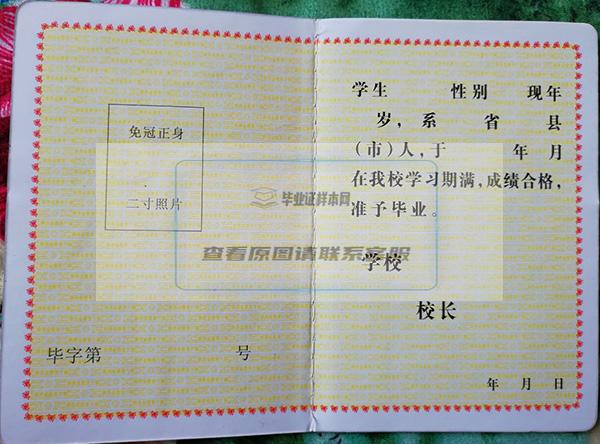 免冠正身
二寸照片
毕字第 号
学生 性别 现年
岁，系 省 县
（市）人，于 年 月
在我校学习期满，成绩合格，
准予毕业。
学校
校长
年 月 日
毕业证样本网
查看原图请联系客服